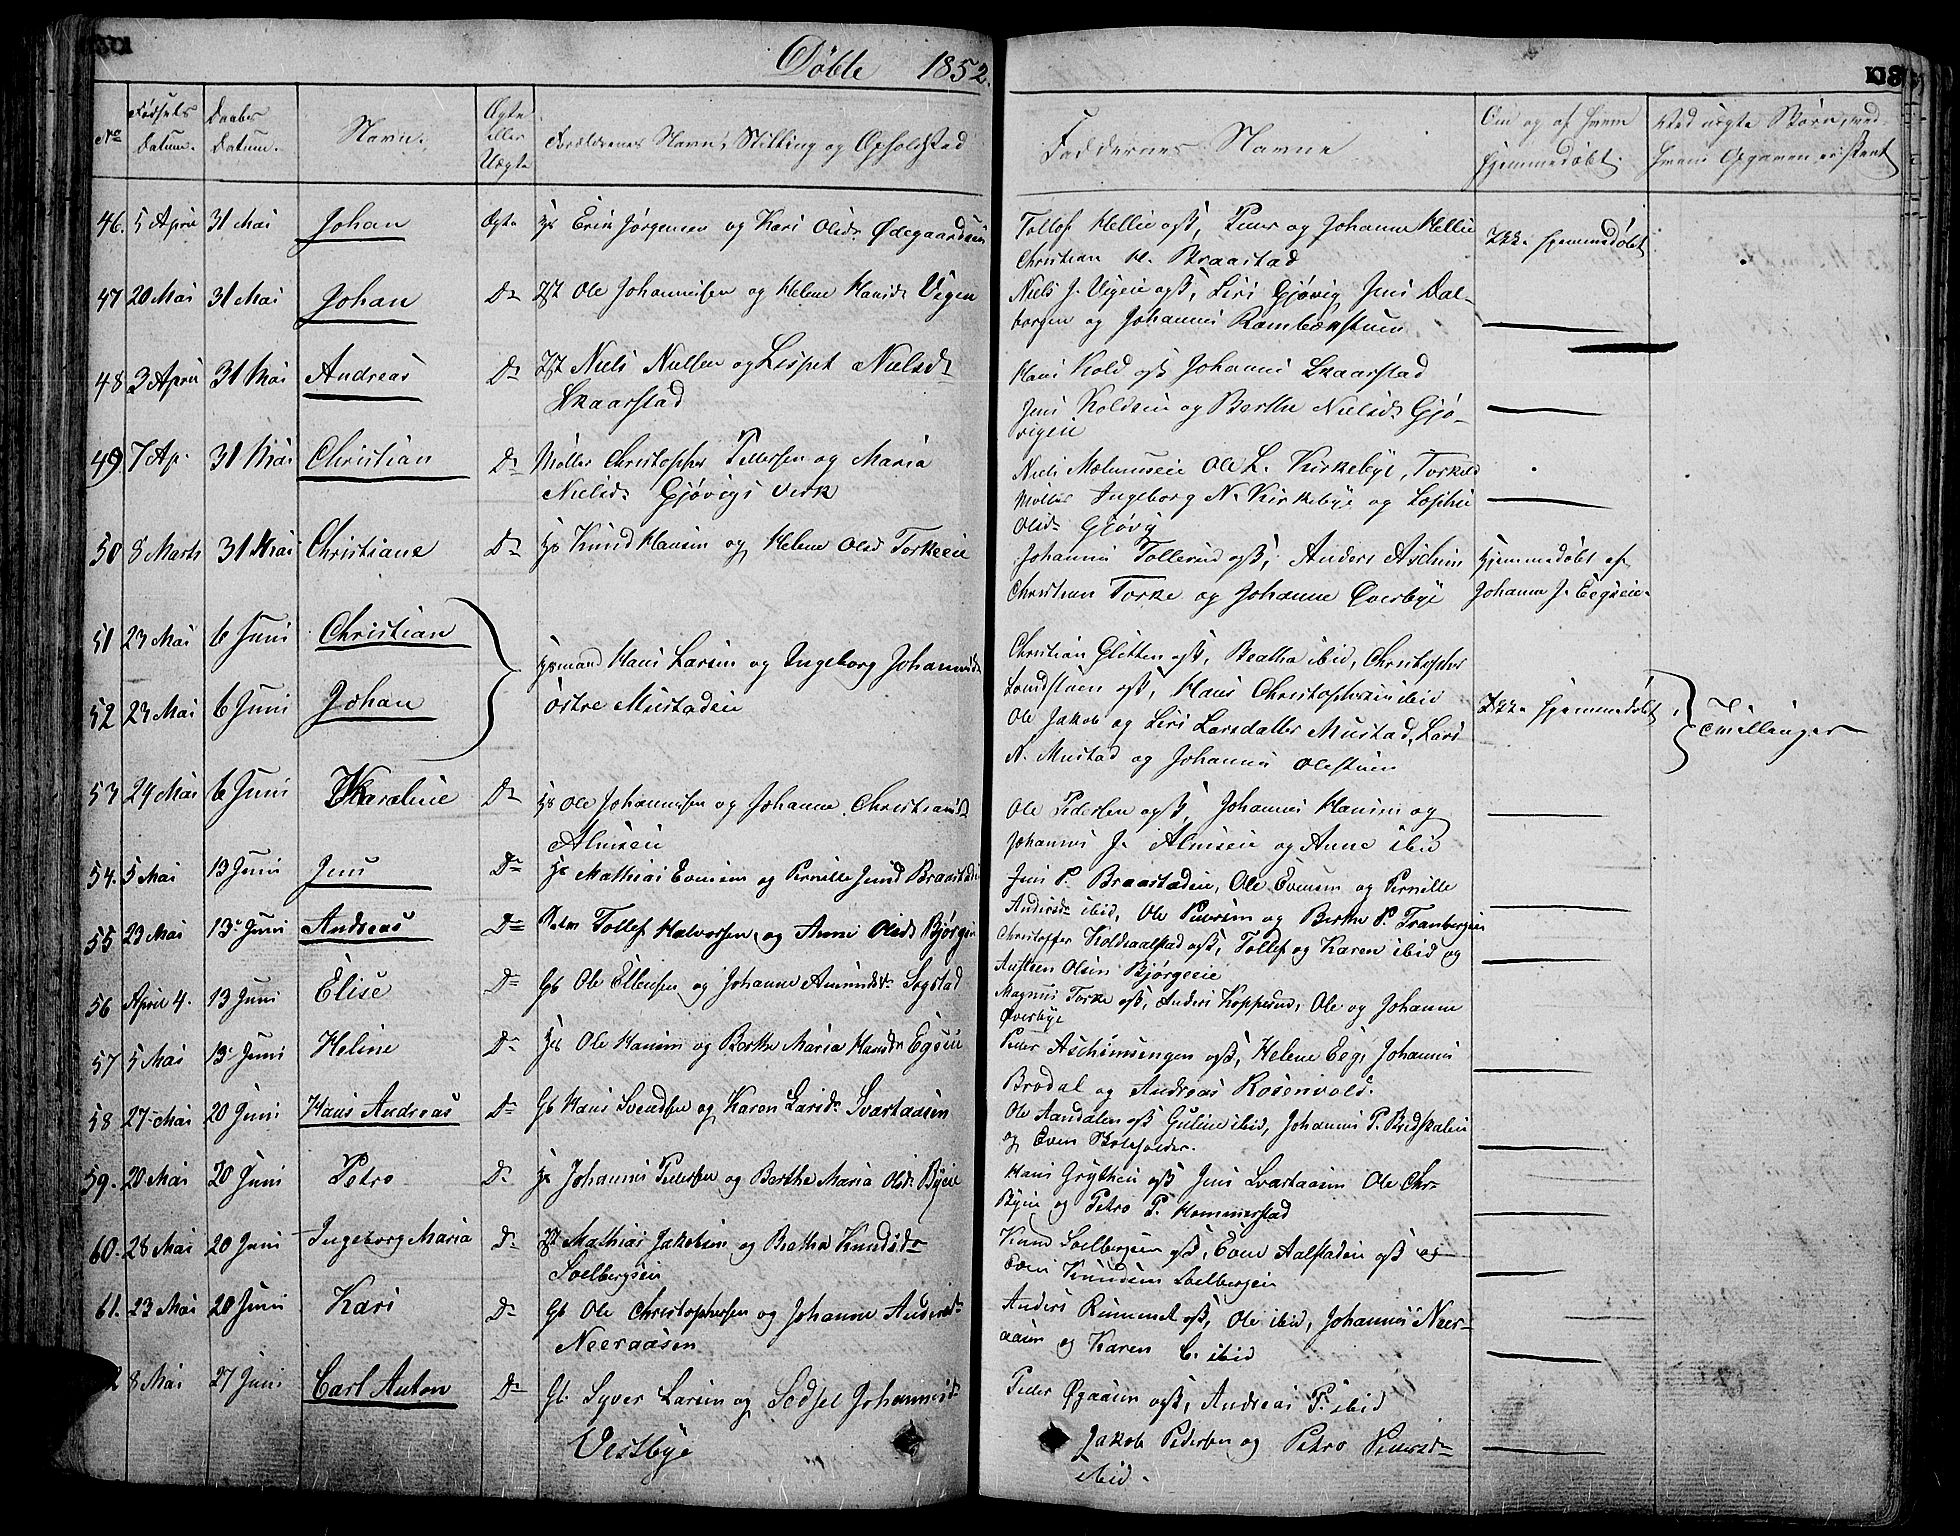 Døbte 1852.
No
Fødsels Datum.
Daabs Datum.
Navn.
Ægte eller Uægte
Forældrenes Navn, Stilling og Opholdstad
Faddernes Navne
Om og af hvem hjemmedøbt.
Ved uægte Børn, ved hvem Opgaven er skeet
46. 5 April 31 Mai Johan Ægte Hs Erik Jørgensen og Kari Olsdr Ødegaardseie
Tollef Hellie ogsk, Peder og Johanne Hellie
Christian H. Braastad
Ikke hjemmedøbt
47 20 Mai 31 Mai Johan Do Ist Ole Johannesen og Helene Hansdr Vigen
Niels J. Vigeie ogsk, Siri Gjøvig Jens Dal-
borgen og Johannes Rambækstuen
48 3 April 31 Mai Andreas Do Ist Niels Nielsen og Lispet Nielsdr
Skaarstad
Hans Kold ogsk Johannes Skaarstad
Jens Koldseie og Berthe Nielsdr Gjø-
vigeie
49 7 Ap. 31 Mai Christian Do Møller Christopher Pettersen og Maria
Nielsdr Gjøvigs Værk
Niels Mælumseie Ole L. Kirkebye, Torkild
Møller Ingeborg N. Kirkebye og Sophie
Olsdr Gjøvig
50 8 Marts 31 Mai Christiane Do Hs Knud Hansen og Helene Olsd Torkeeie
Johannes Tollerud ogsk, Anders Aschim
Christian Torke og Johanne Øverbye
Hjemmedøbt af
Johanne J. Eegseie
51 23 Mai 6 Juni Christian
52 23 Mai 6 Juni Johan
Husmand Hans Larsen og Ingeborg Johannesdr
østre Mustadeie
Christian Glitten ogsk, Beatha ibid, Christopher
Sandstuen ogsk, Hans Christophersen ibid
Ole Jakob og Siri Larsdatter Mustad, Lars
A. Mustad og Johannes Olestuen
Ikke hjemmedøbt
Tvillinger
53 24 Mai 6 Juni Karoline Do Hs Ole Johannesen og Johanne Christiansdr
Almseie
Ole Pedersen ogsk, Johannes Hansen og
Johannes J. Almseie og Anne ibid
54. 5 Mai 13 Juni Jens Do Hs Mathias Evensen og Pernille Jensd Braastadeie
Jens P. Braastadeie, Ole Evensen og Pernille
Andersdr ibid, Ole Pedersen og Berthe P. Tranbergeie
55 23 Mai 13. Juni Andreas Do Tollef Halvorsen og Anne Olsdr Bjørgeie
Christoffer Koldsaalstad ogsk, Tollef og Karen ibid og
Austeen Olsen Bjørgeeie
56 April 4. 13 Juni Elise Do Gb Ole Ellensen og Johanne Amundsdr Sogstad
Magnus Torke ogsk, Anders Kopperud, Ole og Johanne
Øverbye
57 5 Mai 13. Juni Heline Do Hs Ole Hansen og Berthe Maria Hansdr Egseie
Peder Aschimsengen ogsk, Helene Eeg, Johannes
Brodal og Andreas Rosenvold.
58 27 Mai 20 Juni Hans Andreas Do Gb Hans Svendsen og Karen Larsdr Svartaasen
Ole Aandalen ogsk Guline ibid, Johannes P. Bredskaleie
og Even
59. 20 Mai 20 Juni Petro Do Hs Johannes Pettersen og Berthe Maria Olsdr Byeie
Hans Grytheie ogsk Jens Svartaasen Ole Chr.
Byeie og Petro P. Hommerstad
60. 28 Mai 20 Juni Ingeborg Maria Do Ist Mathias Jakobsen og Beatha Knudsdr
Solbergseie
Knud Solbergeie ogsk, Even Aalstadeie ogsk
Even Knudsen Solbergeie
61. 23 Mai 20 Juni Kari Do Gb Ole Christophersen og Johanne Andersdr
Neeraasen
Anders Rummet ogsk, Ole ibid, Johannes Neer-
aasen og Karen C. ibid
8 Mai 27 Juni Carl Anton Do Gb Syver Larsen og Sedsel Johannesdr
Vestbye
Peder Øgaasen ogsk, Andreas P. ibid
Jakob Pedersen og Petro Pedersdr
ibid.